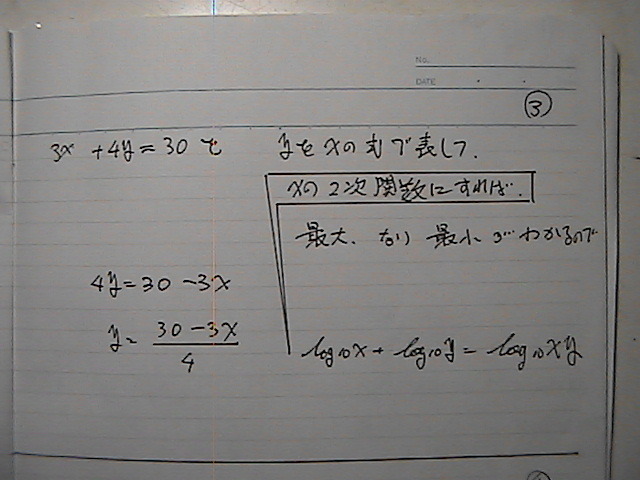 No.
DATE
③
3x + 4y = 30 で yをxの式で表して.
xの2次関数にすれば.
最大、なり 最小 がわかるので
4y = 30 - 3x
y = \frac{30 - 3x}{4}
log₁₀x + log₁₀y = log₁₀xy